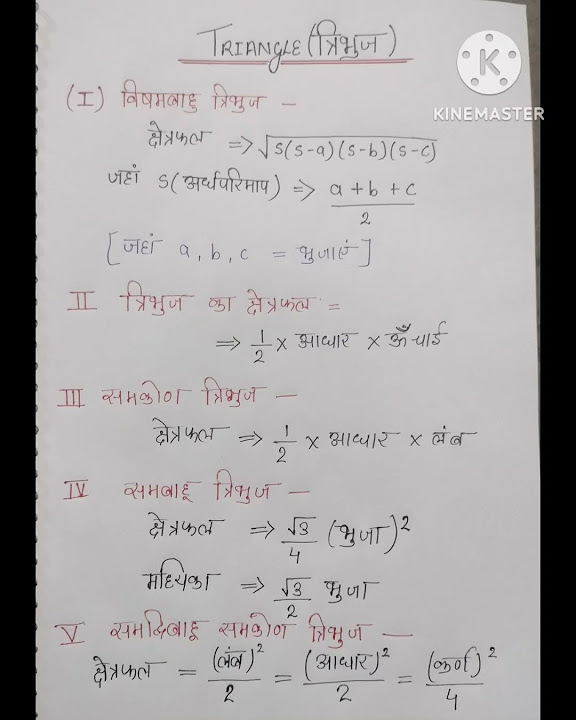 TRIANGLE (त्रिभुज)
KINEMASTER
(I) विषमबाहु त्रिभुज —
क्षेत्रफल => √s(s-a)(s-b)(s-c)
जहां s(अर्धपरिमाप) => a+b+c/2
[जहां a, b, c = भुजाएं]
II त्रिभुज का क्षेत्रफल =
=> 1/2 × आधार × ऊँचाई
III समकोण त्रिभुज —
क्षेत्रफल => 1/2 × आधार × लंब
IV समबाहू त्रिभुज —
क्षेत्रफल => √3/4 (भुजा)²
मध्यिका => √3/2 भुजा
V समद्विबाहू समकोण त्रिभुज —
क्षेत्रफल = (लंब)²/2 = (आधार)²/2 = (कर्ण)²/4